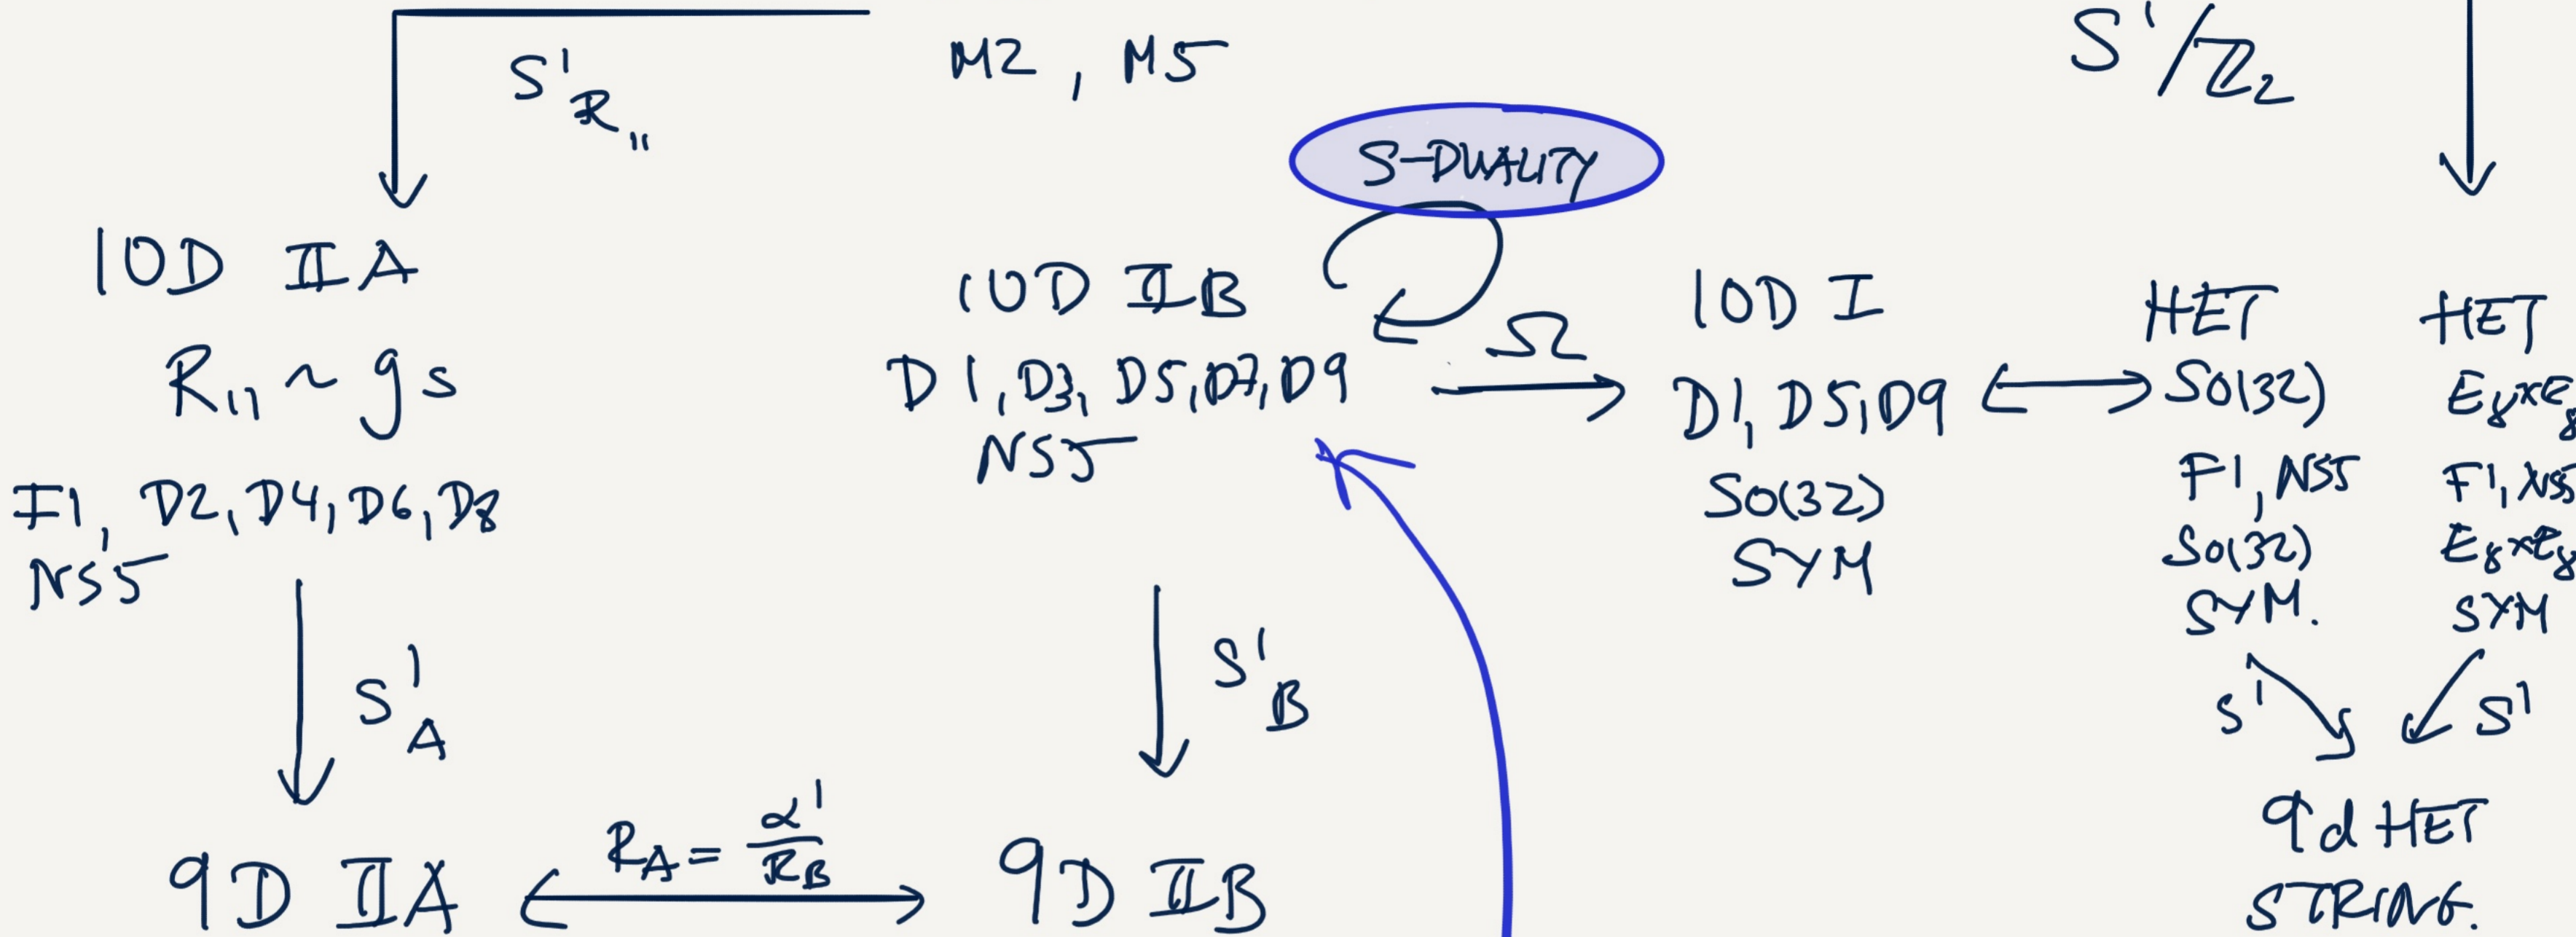 S¹_R₁₁
M2, M5
S¹/ℤ₂
S-DUALITY
10D IIA
R₁₁ ~ gs
F1, D2, D4, D6, D8
NS5
S¹_A
9D IIA
R_A = α'/R_B
10D IIB
D1, D3, D5, D7, D9
NS5
S¹_B
9D IIB
Ω
10D I
D1, D5, D9
SO(32)
SYM
HET
SO(32)
F1, NS5
SO(32)
SYM.
S¹
HET
E₈×E₈
F1, NS5
E₈×E₈
SYM
S¹
9d HET
STRING.